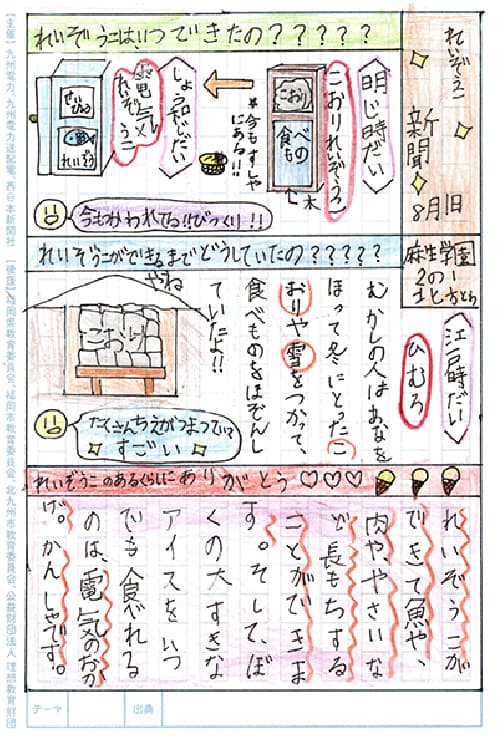 れいぞうこ
新聞
8月1日
麻生学園
2の1
れいぞうこはいつできたの?????
明じ時だい
こおりれいぞうこ
こおり
食べもの
木
*今もすしやにある!!
しょうわじだい
電気れいぞうこ
れいぞう
今もつかわれてる!!びっくり!!
れいぞうこができるまでどうしていたの?????
江戸時だい
ひむろ
むかしの人はあなを
ほって冬にとったこ
おりや雪をつかって、
食べものをほぞんし
ていたよ!!
やね
こおり
たくさんちえがつまっていて
すごい
れいぞうこのあるくらしにありがとう♡♡♡
れいぞうこが
できて魚や、
肉や、やさいな
ど長もちする
ことができま
す。そして、ぼ
くの大すきな
アイスをいつ
でも食べれる
のは、電気のおか
げ。かんしゃです。
テーマ
出典
【主催】九州電力、九州電力送配電、西日本新聞社 【後援】福岡県教育委員会、福岡市教育委員会、北九州市教育委員会、公益財団法人 理想教育財団